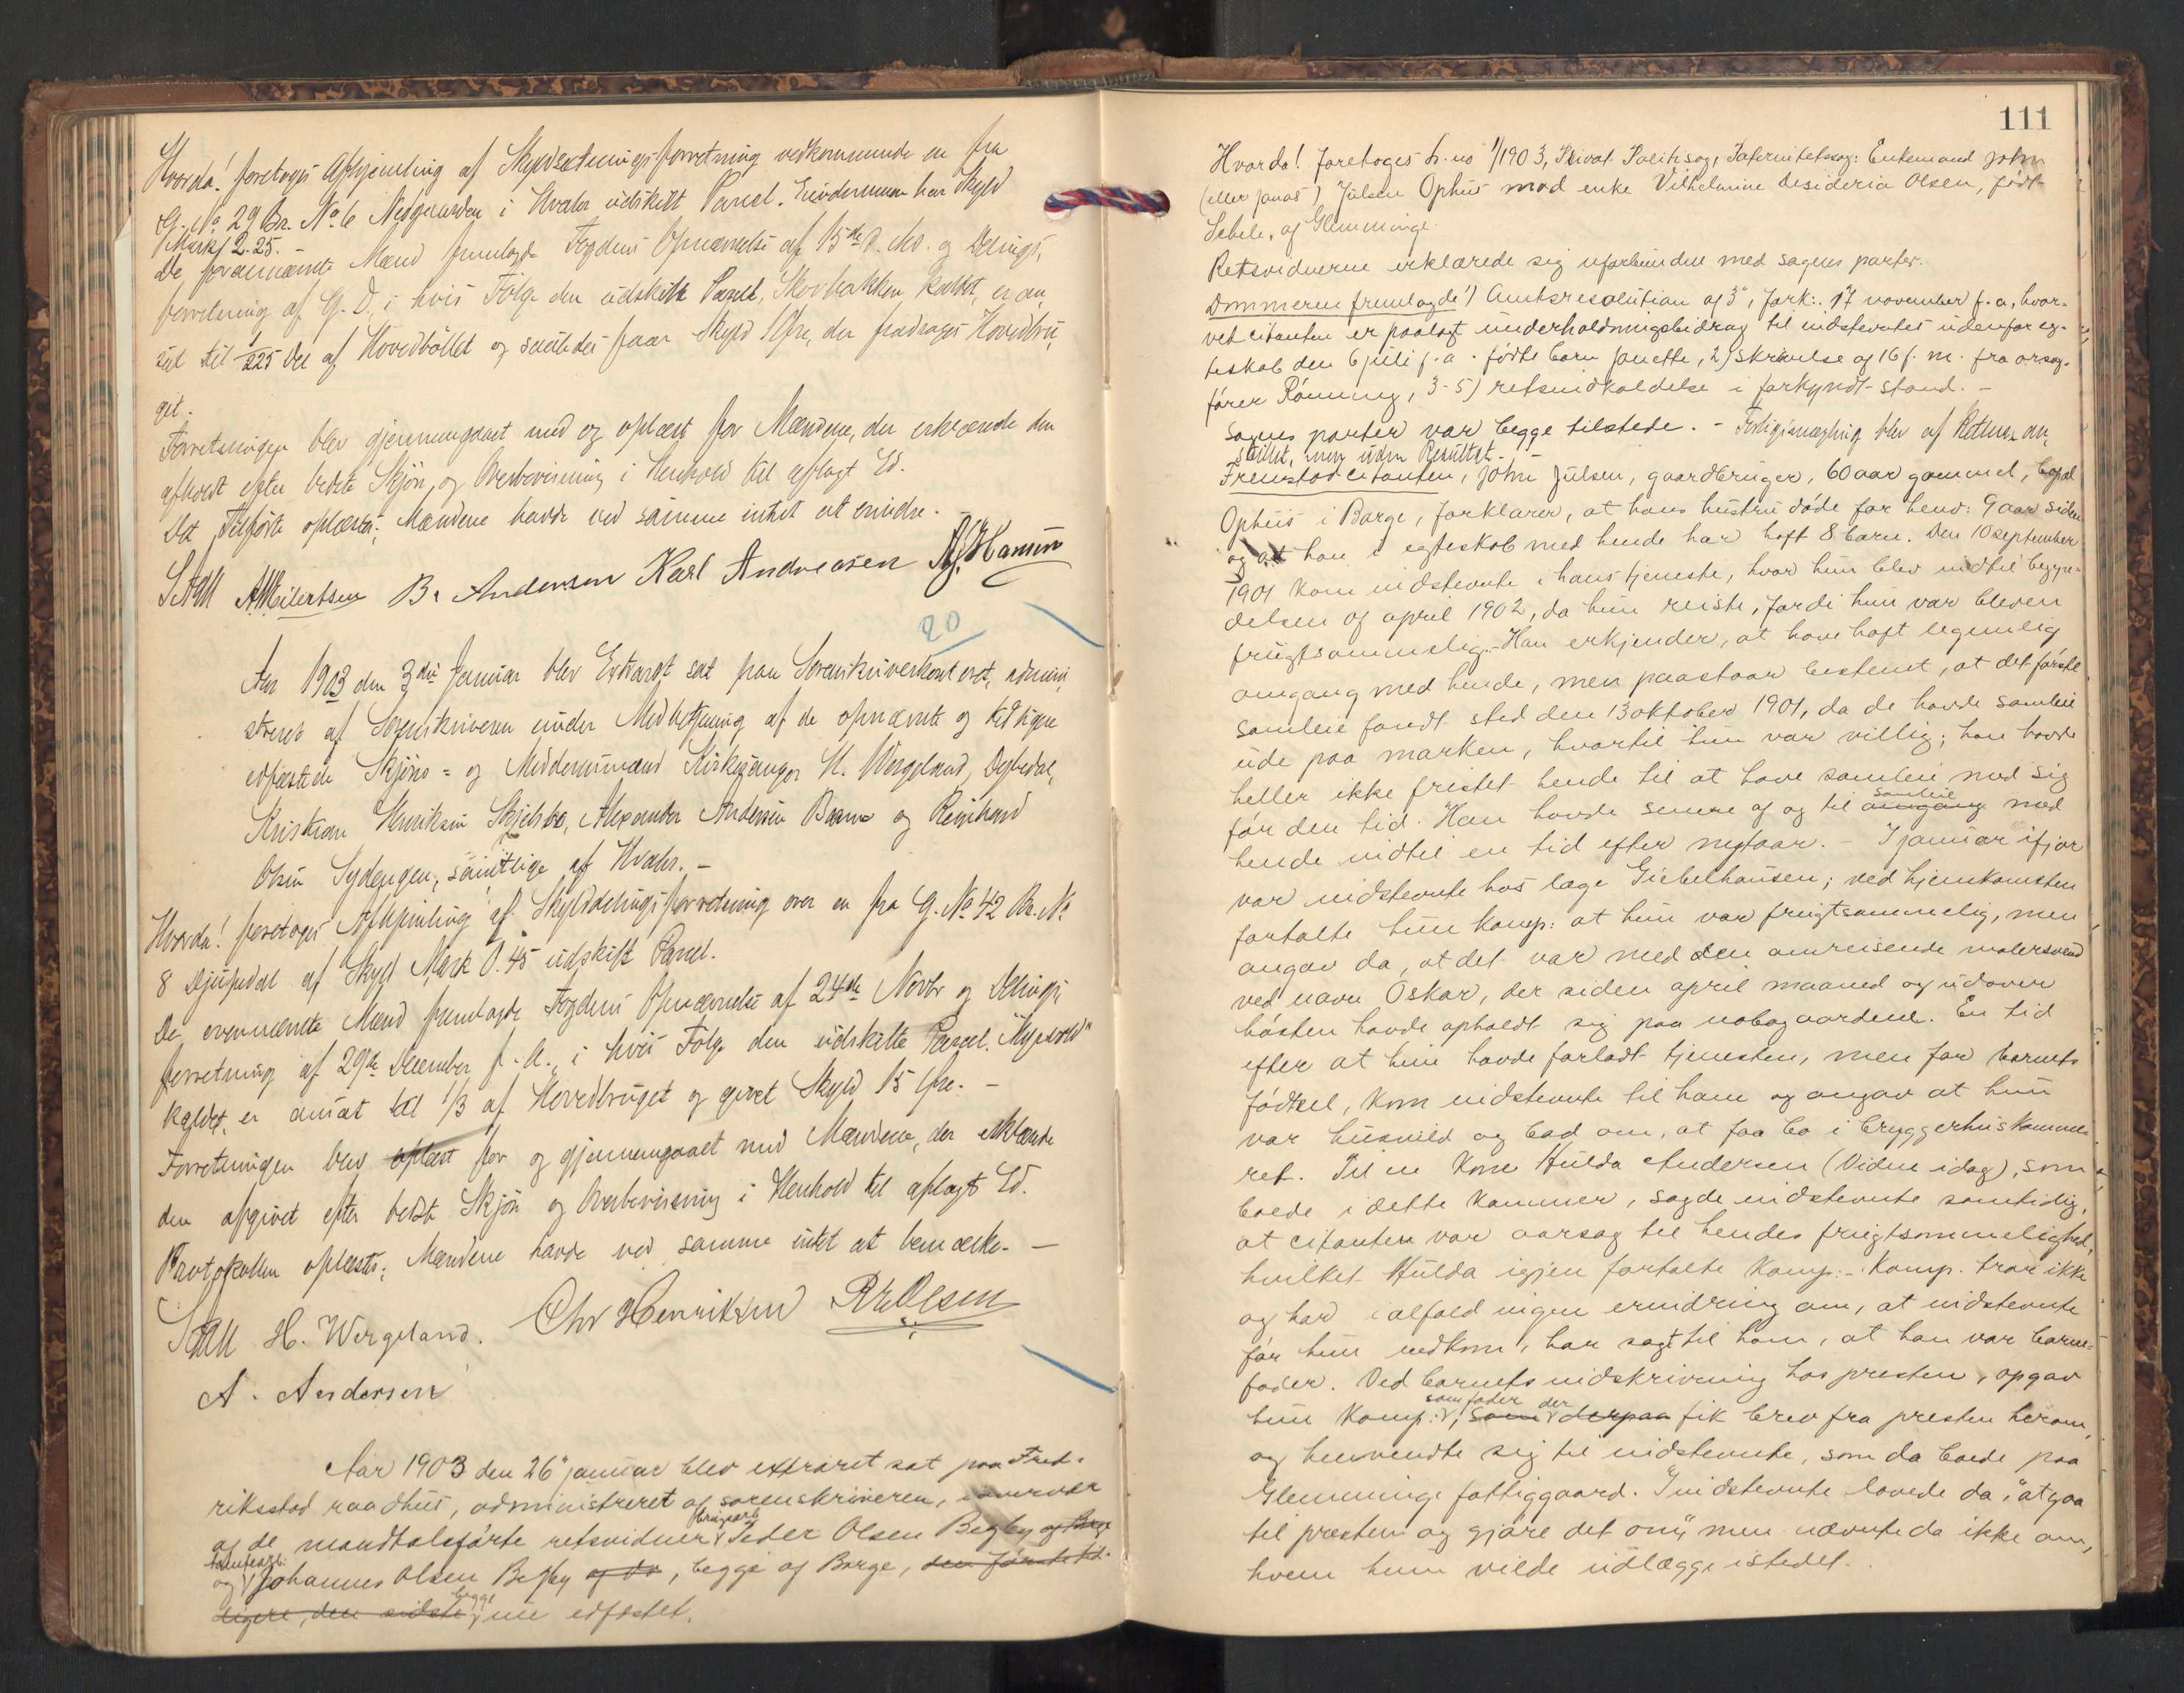 Hvorda! foretoges Afhjemling af Skyldsætningsforretning vedkommende en fra
G. No 29 Br. No 6 Nedgaarden i Hvaler udskilt Parcel. Eiendommen har Skyld
Mark 2.25.
De fornævnte Mænd fremlagde Fogdens Opnævnelse af 15de d. Md. og Delings,
forretning af G. D., i hvis Følge den udskilte Parcel, Skovbakken kaldet, er an,
sat til 1/225 Del af Hovedbøllet og saaledes faar Skyld 1 Øre, der fradrages Hovedbru,
get.
Forretningen blev gjennemgaaet med og oplæst for Mændene, der erklærede den
afholdt efter bedste Skjøn og Overbevisning i Henhold til aflagt Ed.
Det Tilførte oplæstes; Mændene havde ved samme intet at erindre.
A Meilertsen B. Andersen Karl Andreasen A. J. Hansen
20
Aar 1903 den 3die Januar blev Extraret sat paa Sorenskriverkontoret, admini,
streret af Sorenskriveren under Medbetjening af de opnævnte og tidligere
edfæstede Skjøns- og Meddomsmænd Kirkesanger H. Wergeland, Dybedal,
Kristian Henriksen Skjelsbo, Alexander Andersen Barm og Reinhard
Olsen Sydengen, samtlige af Hvaler. -
Hvorda! foretoges Afhjemling af Skylddelingsforretning over en fra G. No 42 Br. No
8 Djupedal af Skyld Mark 0.45 udskilt Parcel.
De overnævnte Mænd fremlagde Fogdens Opnævnelse af 24de Novbr og Delings,
forretning af 29de December f. A., i hvis Følge den udskilte Parcel "Myrvold"
kaldet, er ansat til 1/3 af Hovedbruget og givet Skyld 15 Øre. -
Forretningen blev oplæst for og gjennemgaaet med Mændene, der erklærede
den afgivet efter bedste Skjøn og Overbevisning i Henhold til aflagt Ed.
Protokollen oplæstes; Mændene havde ved samme intet at bemærke. -
H. Wergeland. Chr Henriksen R Olsen
A. Andersen
Aar 1903 den 26" januar blev extraret sat paa Fred-
riksstad raadhus, administreret af sorenskriveren, i overvær
af de mandtalsførte retsvidner Peder Olsen Begby og
og Johannes Olsen Begby og do, begge af Borge, den første tid-
ligere, den sidste begge nu edfæstet.
111
Hvorda! foretoges s. no 1/1903, Privat Politisag, Paternitetssag: Enkemand John
(eller Jonas) Julsen Ophus mod enke Vilhelmine Desideria Olsen, født
Sebele, af Glemminge.
Retsvidnerne erklærede sig uforbundne med sagens parter.
Dommeren fremlagde 1) Amtsresolution af 3", fork: 17 november f. a, hvor-
ved citanten er paalagt underholdningsbidrag til indstevntes udenfor eg-
teskab den 6 juli f. a. fødte barn Janette, 2) skrivelse af 16 f. m. fra orsag-
fører Rønning, 3-5) retsindkaldelse i forkyndt stand. -
Sagens parter var begge tilstede. - Forligsmægling blev af Retten an,
stillet, men uden Resultat. -
Fremstod citanten, John Julsen, gaardbruger, 60 aar gammel, bopæl
Ophus i Borge, forklarer, at hans hustru døde for henv: 9 aar siden
og at han i egteskab med hende har haft 8 barn. Den 10 september
1901 kom indstevnte i hans tjeneste, hvor hun blev indtil begyn-
delsen af april 1902, da hun reiste, fordi hun var bleven
frugtsommelig. - Han erkjender, at have haft legemlig
omgang med hende, men paastaar bestemt, at det første
samleie fandt sted den 13 oktober 1901, da de havde samleie
ude paa marken, hvortil hun var villig; han havde
heller ikke fristet hende til at have samleie med sig
før den tid. Han havde senere af og til samleie omgang med
hende indtil en tid efter nytaar. - I januar ifjor
var indstevnte hos læge Giebelhausen; ved hjemkomsten
fortalte hun komp: at hun var frugtsommelig, men
angav da, at det var med den omreisende malersvend
ved navn Oskar, der siden april maaned og udover
høsten havde opholdt sig paa nabogaardene. En tid
efter at hun havde forladt tjenesten, men før barnets
fødsel, kom indstevnte til ham og angav at hun
var husvild og bad om, at faa bo i bryggerhuskamme-
ret. Til en kone Hulda Andersen (Vidne idag), som
boede i dette kammer, sagde indstevnte samtidig,
at citanten var aarsag til hendes frugtsommelighed,
hvilket Hulda igjen fortalte komp: - Komp. tror ikke
og har ialfald ingen erindring om, at indstevnte
før hun nedkom, har sagt til ham, at han var barne-
fader. Ved barnets indskrivning hos presten, opgav
hun komp: som fader, der som derpaa fik brev fra presten herom,
og henvendte sig til indstevnte, som da boede paa
Glemminge fattiggaard. Indstevnte lovede da, "at gaa
til presten og gjøre det om," men nævnte da ikke om,
hvem hun vilde udlægge istedet.